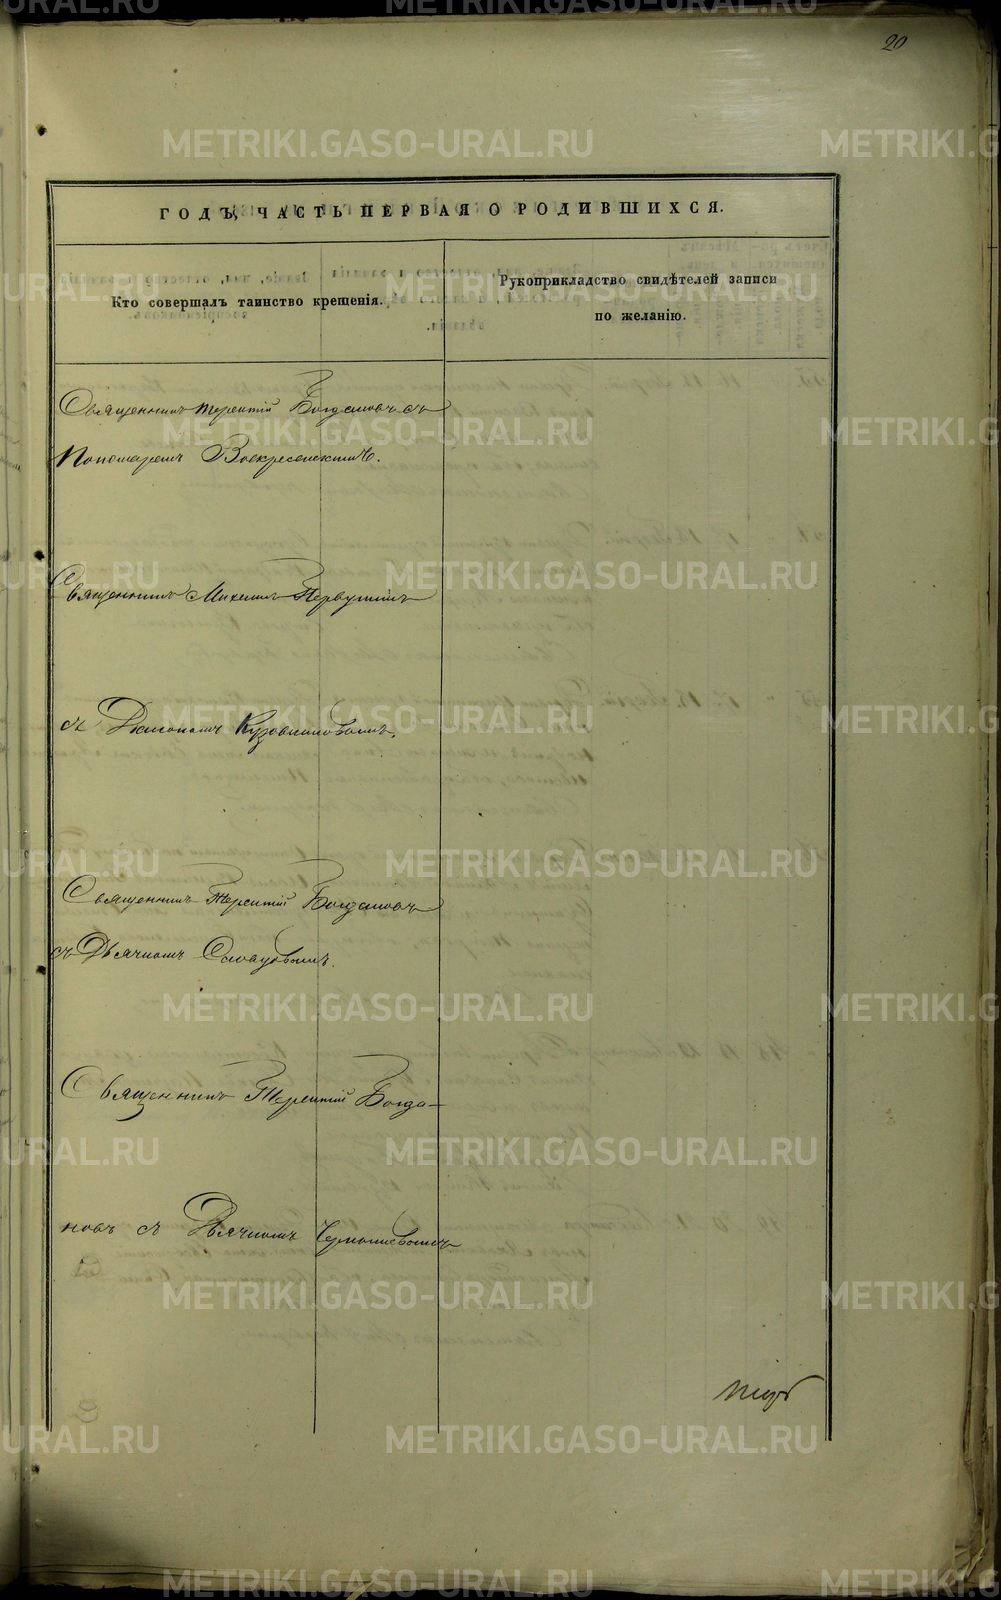 20
ГОДЪ, ЧАСТЬ ПЕРВАЯ О РОДИВШИХСЯ.
Кто совершалъ таинство крещенія.
Рукоприкладство свидѣтелей записи
по желанію.
Священникъ Терентій Богдановъ съ
Пономаремъ Воскресенскимъ.
Священникъ Михаилъ Первушинъ
съ Діакономъ Кузовниковымъ.
Священникъ Терентій Богдановъ
съ Дьячкомъ
Священникъ Терентій Богда-
новъ съ Дьячкомъ
METRIKI.GASO-URAL.RU